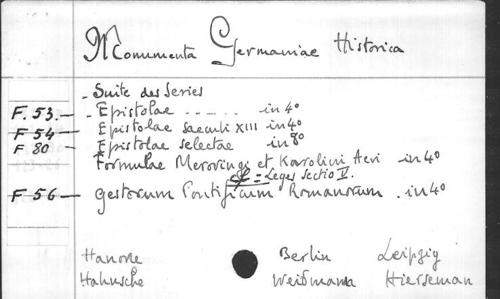 Monumenta Germaniae Historica
- Suite des Series
F. 53. - Epistolae ........ in 4°
F 54 - Epistolae saeculi XIII in 4°
F 80 - Epistolae selectae in 8°
Formulae Merovingi et Karolini Aevi in 4°
cf = Leges sectio V.
F 56 - Gestorum Pontificum Romanorum . in 4°
Hanovre Berlin Leipzig
Hahnsche Weidmann Hierseman